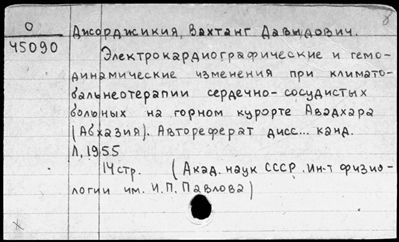 0
45090
Джорджикия, Вахтанг Давидович.
Электрокардиографические и гемо-
динамические изменения при климато-
бальнеотерапии сердечно-сосудистых
больных на горном курорте Авадхара
(Абхазия). Автореферат дисс... канд.
Л, 1955
14стр. (Акад. наук СССР. Ин-т физио-
логии им. И.П. Павлова)